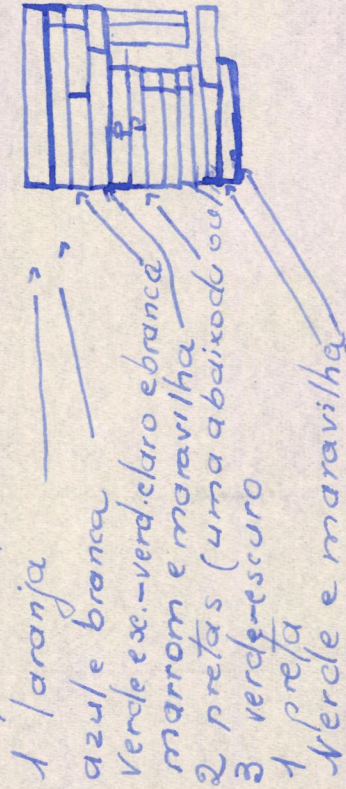 1 laranja
azul e branca
verde esc.-verd.claro e branca
marrom e maravilha
2 pretas (uma abaixo da
3 verde-escuro
1 preta
Verde e maravilha